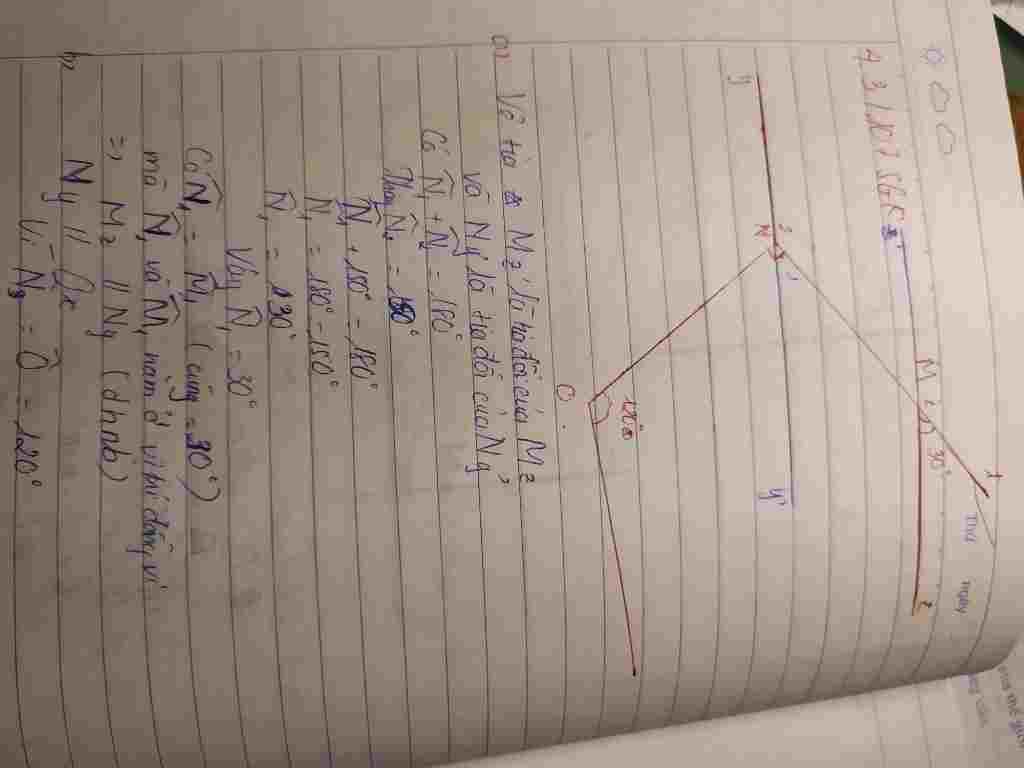 Thứ
Ngày
4.3/87 SGK
A
z
M 2 1 30°
z'
y
N 2 1
y'
120°
O
a) Vẽ tia Mz' là tia đối của Mz
và Ny' là tia đối của Ny
Có N̂₁ + N̂₂ = 180°
Thay N̂₂ = 150°
N̂₁ + 150° = 180°
N̂₁ = 180° - 150°
N̂₁ = 30°
Vậy N̂₁ = 30°
Có N̂₁ = M̂₁ (cùng = 30°)
mà N̂₁ và M̂₁ nằm ở vị trí đồng vị
=> Mz // Ny (dhnb)
b) Ny // Ox
Vì N̂₃ = Ô = 120°